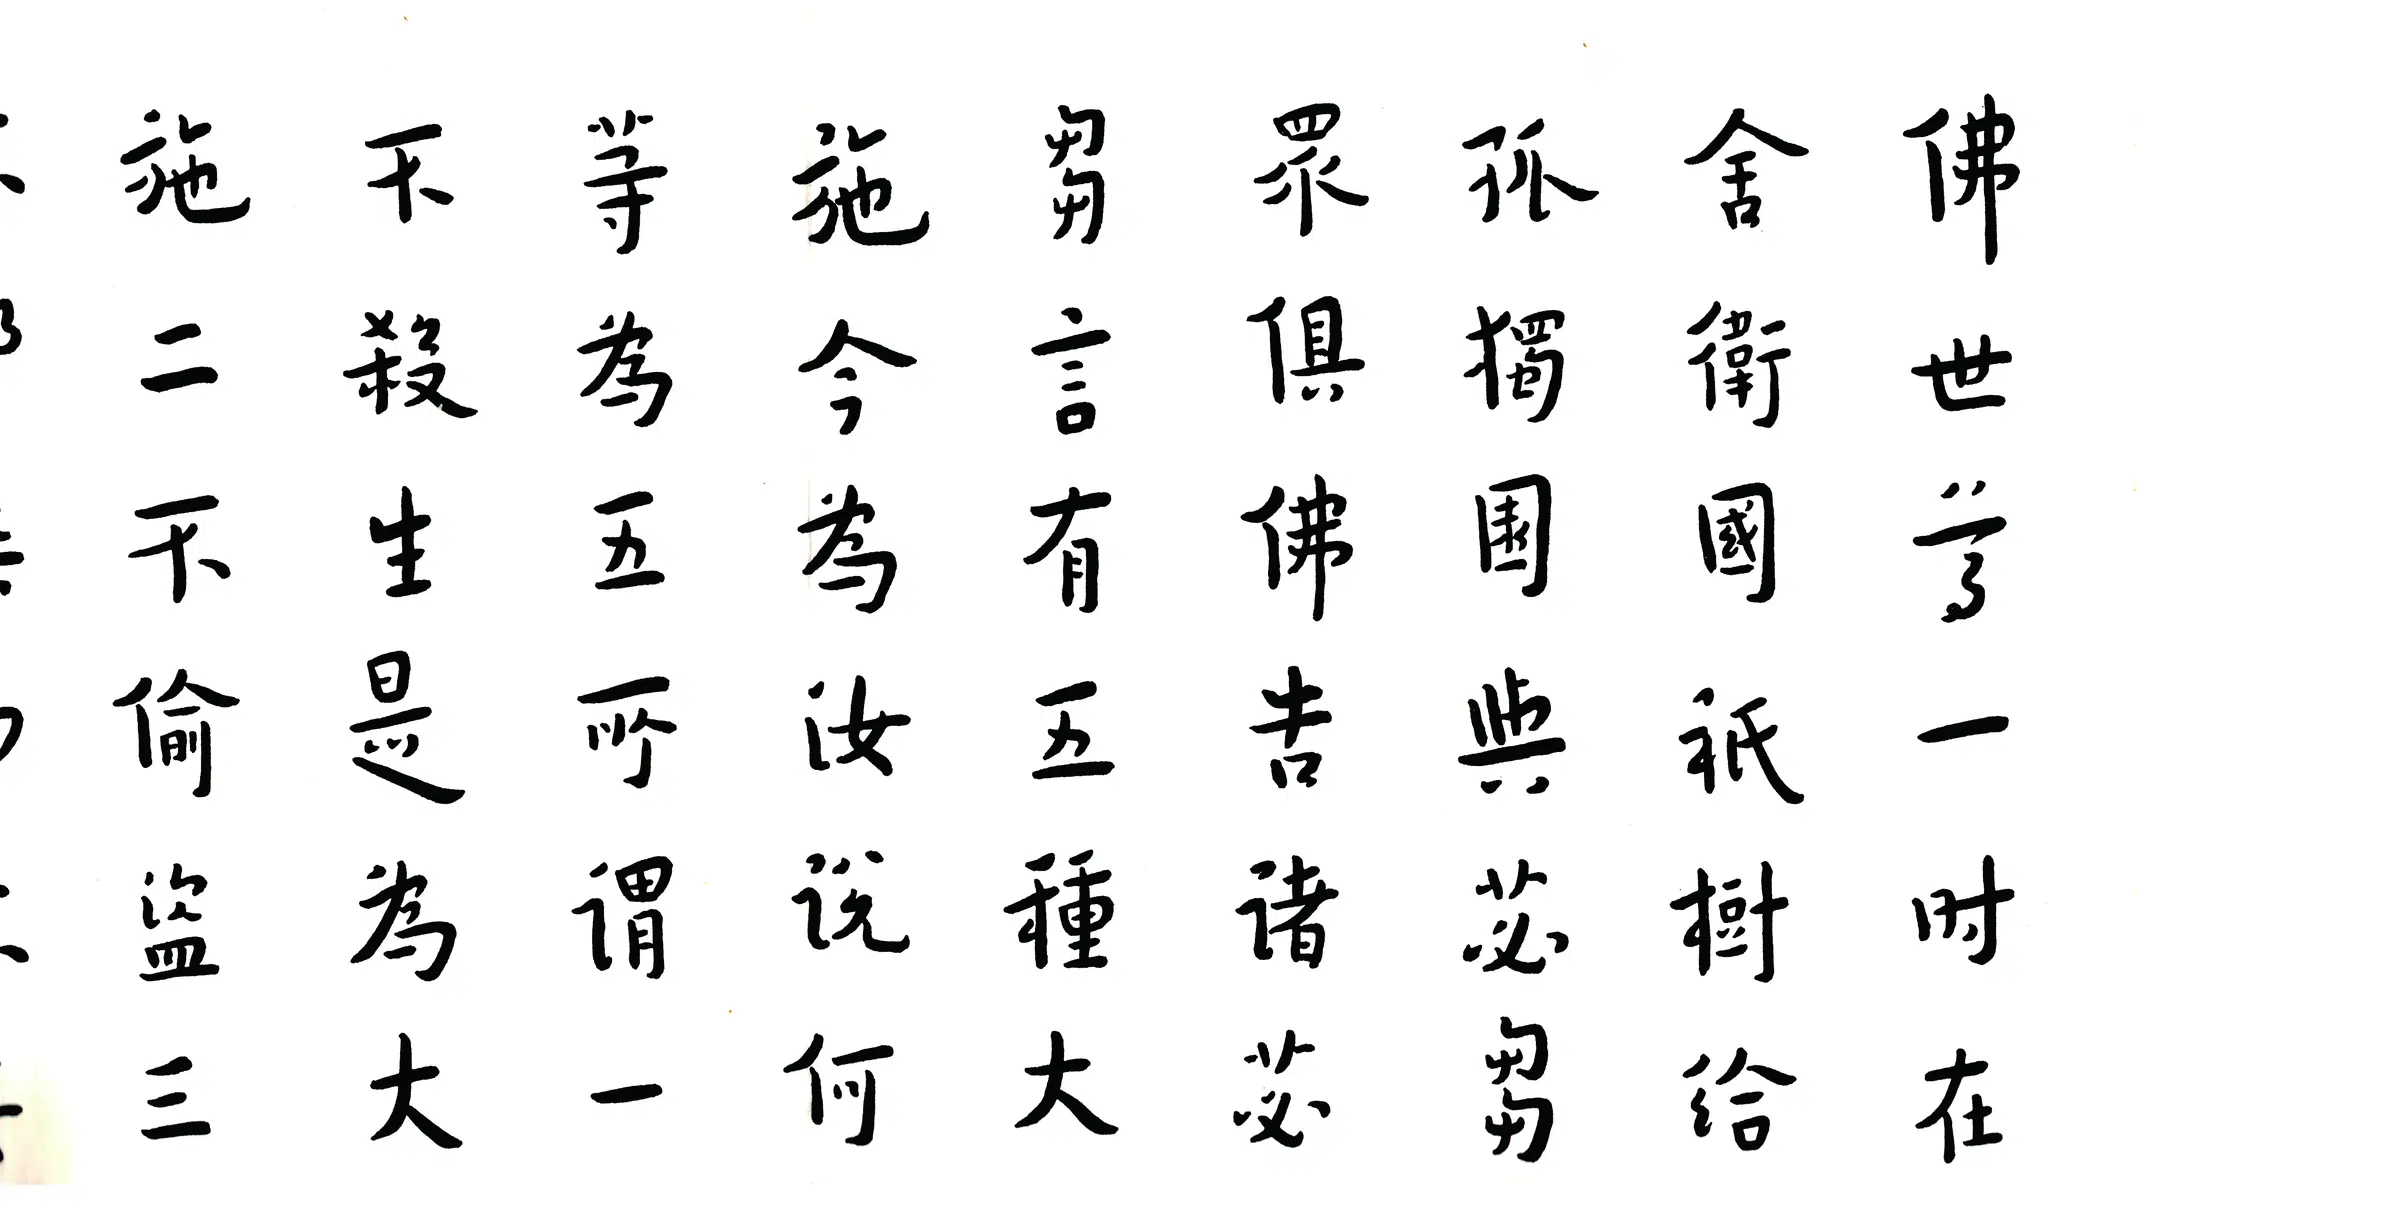 佛世尊一时在
舍衛國祇樹给
孤獨園與苾芻
眾俱佛告诸苾
芻言有五種大
施今為汝说何
等為五所谓一
不殺生是為大
施二不偷盜三